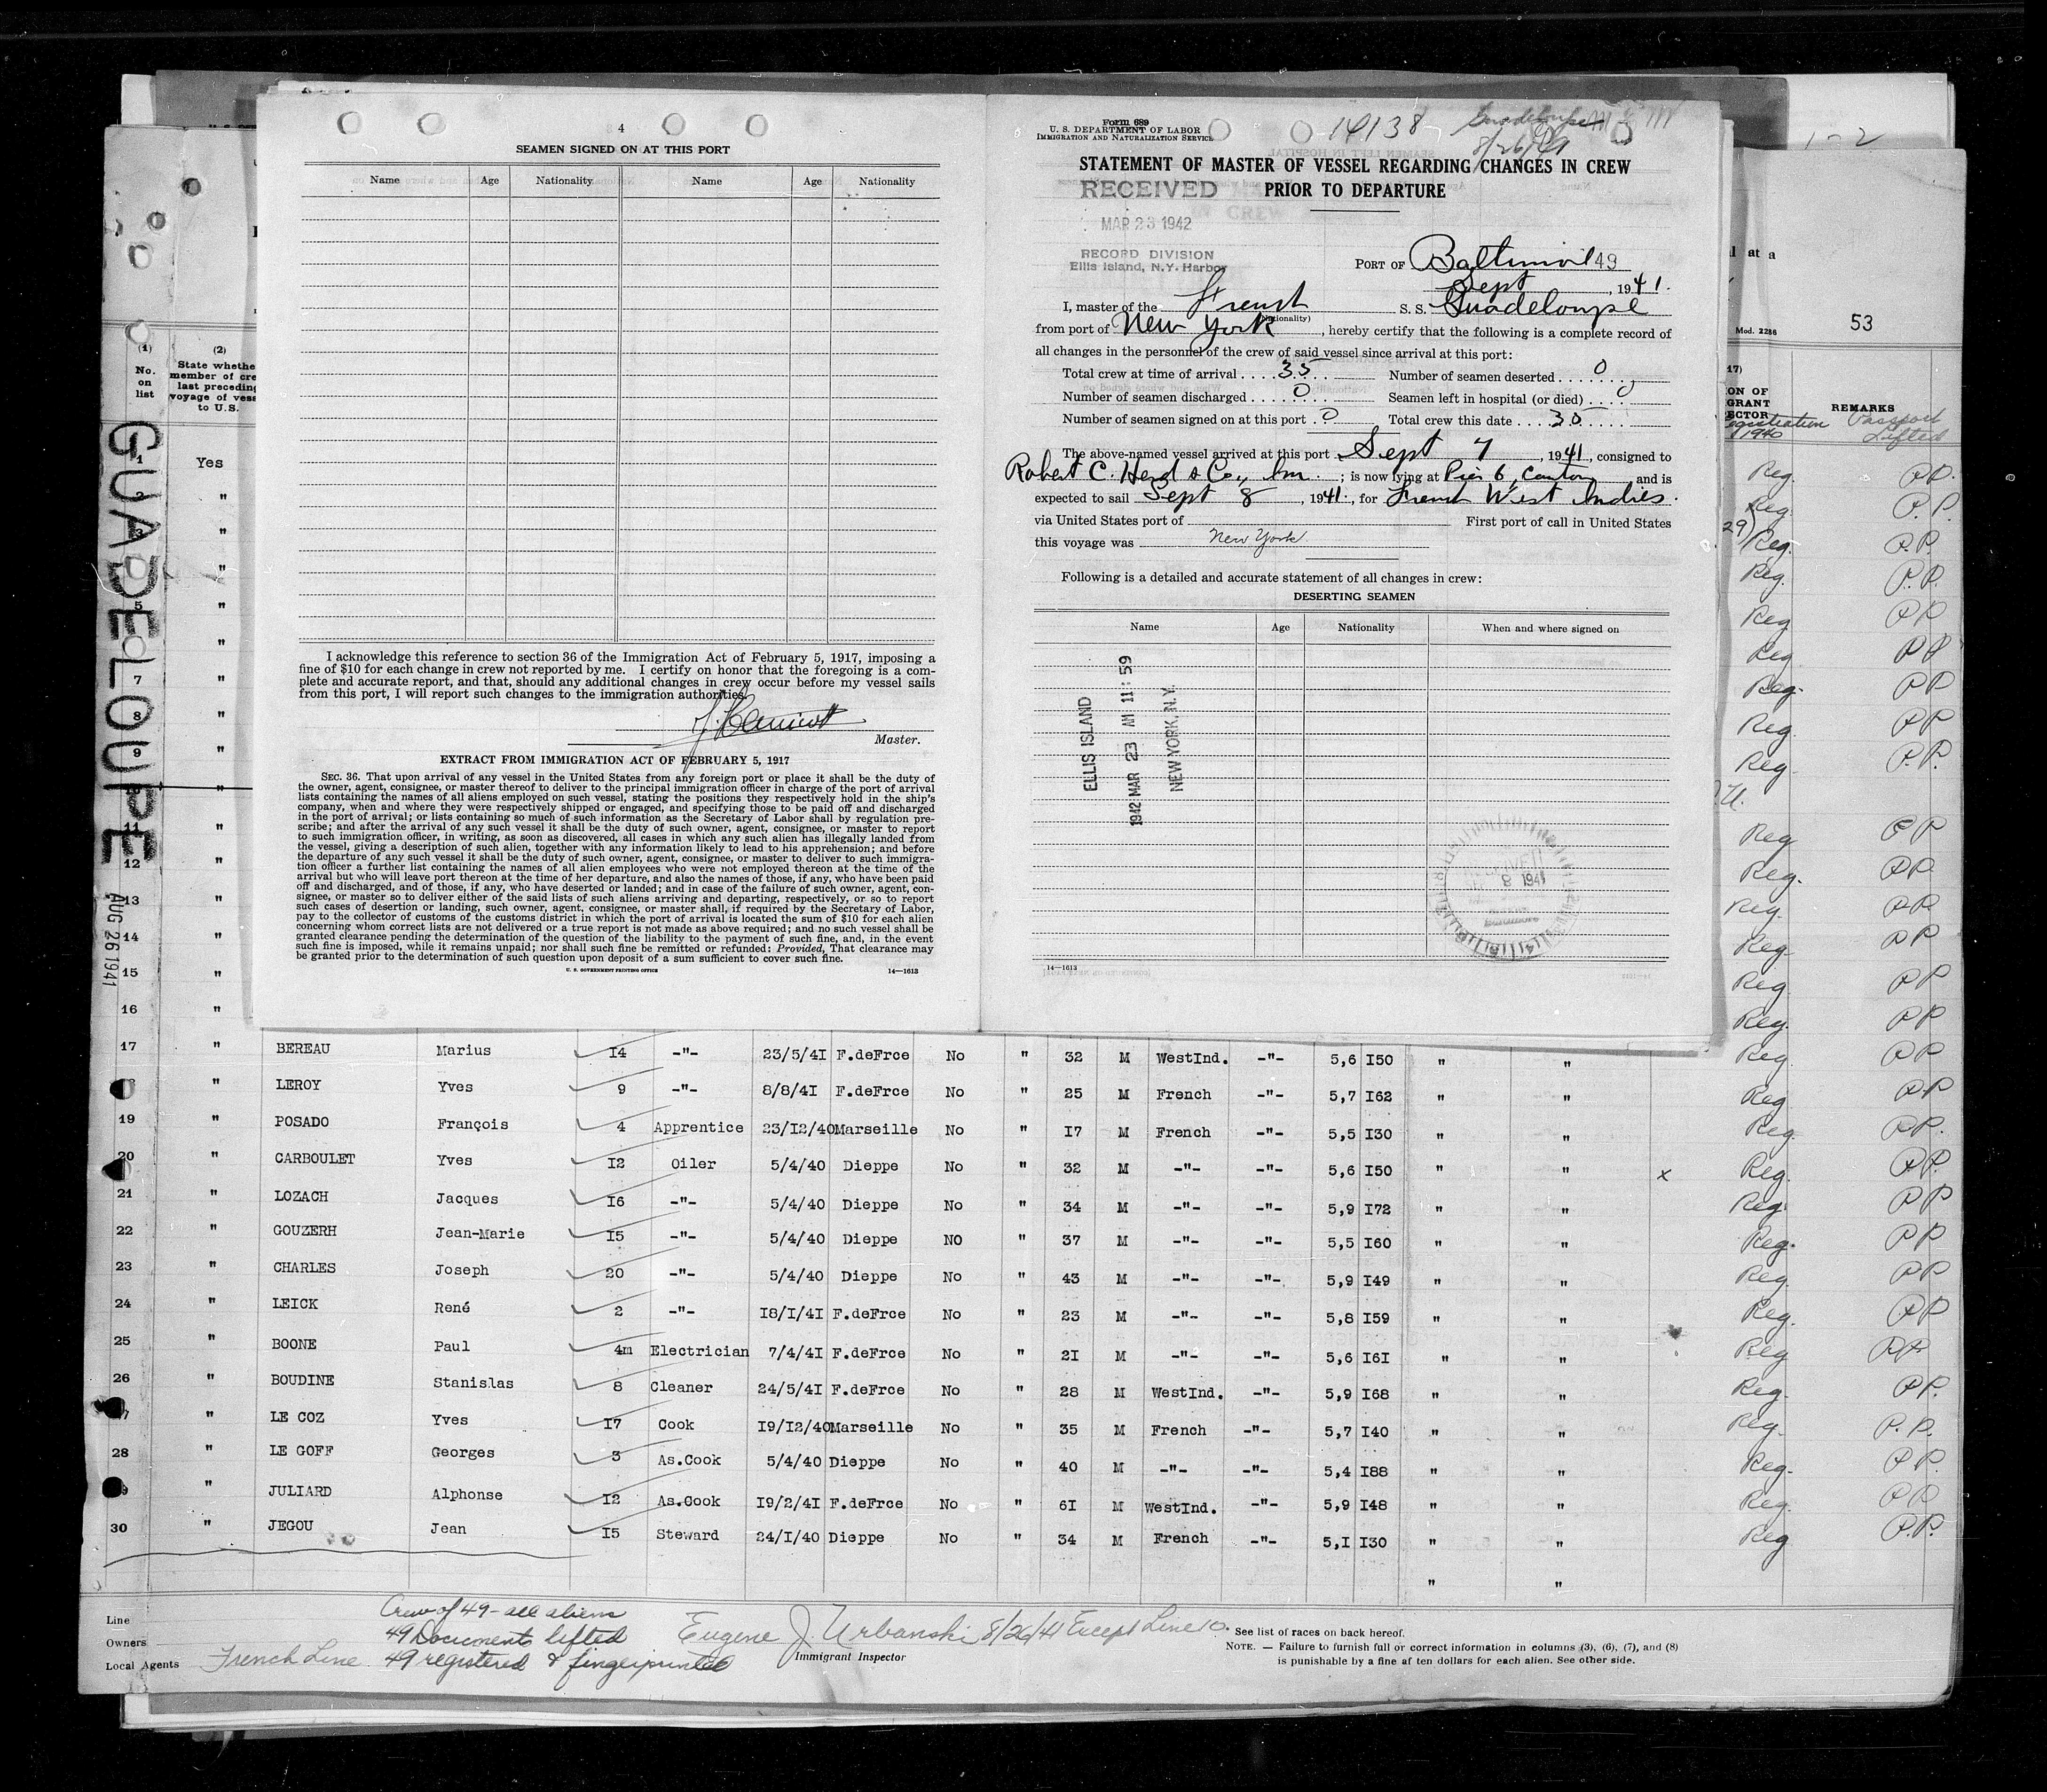 4
SEAMEN SIGNED ON AT THIS PORT
Name Age Nationality Name Age Nationality
I acknowledge this reference to section 36 of the Immigration Act of February 5, 1917, imposing a
fine of $10 for each change in crew not reported by me. I certify on honor that the foregoing is a com-
plete and accurate report, and that, should any additional changes in crew occur before my vessel sails
from this port, I will report such changes to the immigration authorities.
Master.
EXTRACT FROM IMMIGRATION ACT OF FEBRUARY 5, 1917
SEC. 36. That upon arrival of any vessel in the United States from any foreign port or place it shall be the duty of
the owner, agent, consignee, or master thereof to deliver to the principal immigration officer in charge of the port of arrival
lists containing the names of all aliens employed on such vessel, stating the positions they respectively hold in the ship's
company, when and where they were respectively shipped or engaged, and specifying those to be paid off and discharged
in the port of arrival; or lists containing so much of such information as the Secretary of Labor shall by regulation pre-
scribe; and after the arrival of any such vessel it shall be the duty of such owner, agent, consignee, or master to report
to such immigration officer, in writing, as soon as discovered, all cases in which any such alien has illegally landed from
the vessel, giving a description of such alien, together with any information likely to lead to his apprehension; and before
the departure of any such vessel it shall be the duty of such owner, agent, consignee, or master to deliver to such immigra-
tion officer a further list containing the names of all alien employees who were not employed thereon at the time of the
arrival but who will leave port thereon at the time of her departure, and also the names of those, if any, who have been paid
off and discharged, and of those, if any, who have deserted or landed; and in case of the failure of such owner, agent, con-
signee, or master so to deliver either of the said lists of such aliens arriving and departing, respectively, or so to report
such cases of desertion or landing, such owner, agent, consignee, or master shall, if required by the Secretary of Labor,
pay to the collector of customs of the customs district in which the port of arrival is located the sum of $10 for each alien
concerning whom correct lists are not delivered or a true report is not made as above required; and no such vessel shall be
granted clearance pending the determination of the question of the liability to the payment of such fine, and, in the event
such fine is imposed, while it remains unpaid; nor shall such fine be remitted or refunded: Provided, That clearance may
be granted prior to the determination of such question upon deposit of a sum sufficient to cover such fine.
U. S. GOVERNMENT PRINTING OFFICE 14—1613
Form 689
U. S. DEPARTMENT OF LABOR
IMMIGRATION AND NATURALIZATION SERVICE
14138 Guadeloupe
8/26/41
STATEMENT OF MASTER OF VESSEL REGARDING CHANGES IN CREW
PRIOR TO DEPARTURE
RECEIVED
MAR 23 1942
RECORD DIVISION
Ellis Island, N.Y. Harbor
PORT OF Baltimore 49
Sept , 1941.
I, master of the French S. S. Guadeloupe
(Nationality)
from port of New York, hereby certify that the following is a complete record of
all changes in the personnel of the crew of said vessel since arrival at this port:
Total crew at time of arrival .... 35 Number of seamen deserted .... 0
Number of seamen discharged .... 0 Seamen left in hospital (or died) .... 0
Number of seamen signed on at this port . 0 Total crew this date .... 35
The above-named vessel arrived at this port Sept 7, 1941, consigned to
Robert C. Herd & Co., Inc. ; is now lying at Pier 6, Canton and is
expected to sail Sept 8, 1941, for French West Indies.
via United States port of First port of call in United States
this voyage was New York
Following is a detailed and accurate statement of all changes in crew:
DESERTING SEAMEN
Name Age Nationality When and where signed on
ELLIS ISLAND
1942 MAR 23 AM 11:59
NEW YORK, N.Y.
8 1941
14—1613
at a
Mod. 2286
53
(1) No. on list
(2) State whether member of crew last preceding voyage of vessel to U.S.
REMARKS
Registration 1940
Passport Lifted
GUADELOUPE
AUG 26 1941
1 Yes Reg. P.P.
" Reg. P.P.
" Reg. P.P.
" Reg. P.P.
5 " Reg P P
" Reg P P
7 " Reg. P P
8 " Reg P P
9 " Reg P.P.
"
11 " Reg P P
12 " Reg. P P.
13 " Reg. P P
14 " Reg. P P
15 " Reg P P
16 " Reg. P P
17 " BEREAU Marius 14 -"- 23/5/41 F.deFrce No " 32 M WestInd. -"- 5,6 150 " " Reg P P
" LEROY Yves 9 -"- 8/8/41 F.deFrce No " 25 M French -"- 5,7 162 " " Reg P P
19 " POSADO François 4 Apprentice 23/12/40 Marseille No " 17 M French -"- 5,5 130 " " Reg. P P.
20 " CARBOULET Yves 12 Oiler 5/4/40 Dieppe No " 32 M -"- -"- 5,6 150 " " x Reg. P.P.
21 " LOZACH Jacques 16 -"- 5/4/40 Dieppe No " 34 M -"- -"- 5,9 172 " " Reg. P P
22 " GOUZERH Jean-Marie 15 -"- 5/4/40 Dieppe NO " 37 M -"- -"- 5,5 160 " " Reg. P P
23 " CHARLES Joseph 20 -"- 5/4/40 Dieppe No " 43 M -"- -"- 5,9 149 " " Reg. P P
24 " LEICK René 2 -"- 18/1/41 F.deFrce No " 23 M -"- -"- 5,8 159 " " Reg. P P
25 " BOONE Paul 4m Electrician 7/4/41 F.deFrce No " 21 M -"- -"- 5,6 161 " " Reg P P
26 " BOUDINE Stanislas 8 Cleaner 24/5/41 F.deFrce No " 28 M WestInd. -"- 5,9 168 " " Reg. P P.
" LE COZ Yves 17 Cook 19/12/40 Marseille No " 35 M French -"- 5,7 140 " " Reg. P. P.
28 " LE GOFF Georges 3 As.Cook 5/4/40 Dieppe No " 40 M -"- -"- 5,4 188 " " Reg. P P.
" JULIARD Alphonse 12 As.Cook 19/2/41 F.deFrce No " 61 M WestInd. -"- 5,9 148 " " Reg. P P
30 " JEGOU Jean 15 Steward 24/1/40 Dieppe No " 34 M French -"- 5,1 130 " " Reg P.P.
" "
Line
Owners
Local Agents French Line
Crew of 49 - all aliens
49 Documents lifted
49 registered & fingerprinted
Eugene J. Urbanski 8/26/41 Except Line 10.
Immigrant Inspector
See list of races on back hereof.
NOTE. — Failure to furnish full or correct information in columns (3), (6), (7), and (8)
is punishable by a fine af ten dollars for each alien. See other side.